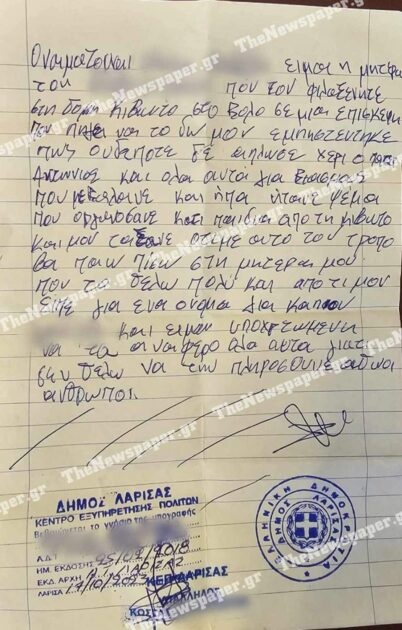 Ονομαζομαι ειμαι η μητερα
του που τον φιλοξενητε
στη δομη κιβωτο στο Βολο σε μια επισκεψη
που πηγα να το δω μου εμπηστευτηκε
πως ουδεποτε δε σηλωσε χερι ο πατηρ
Αντωνιος και ολα αυτα για βιασμους
και ητα ητανε ψεμα
που οργανοσανε κατι παιδια απο τη κιβωτο
και μου ταξανε οτι με αυτο τον τροπο
θα παω πισω στη μητερα μου
που το θελω πολυ και οτι μου
ειπε για ενα ονομα για καποιον
και ειμαι υποχρεωμενη
να τα αναφερο ολα αυτα γιατι
δεν θελω να την πληροσουνε αθωοι
ανθρωποι.
ΔΗΜΟΣ ΛΑΡΙΣΑΣ
ΚΕΝΤΡΟ ΕΞΥΠΗΡΕΤΗΣΗΣ ΠΟΛΙΤΩΝ
Βεβαιώνεται το γνήσιο της υπογραφής
Α.Δ.Τ.
ΗΜ. ΕΚΔΟΣΗΣ 05/02/2018
ΕΚΔ. ΑΡΧΗ Α.Τ. ΛΑΡΙΣΑΣ
ΛΑΡΙΣΑ
ΚΕΠ ΛΑΡΙΣΑΣ
ΕΛΛΗΝΙΚΗ ΔΗΜΟΚΡΑΤΙΑ
ΔΗΜΟΣ ΛΑΡΙΣΑΣ
TheNewspaper.gr